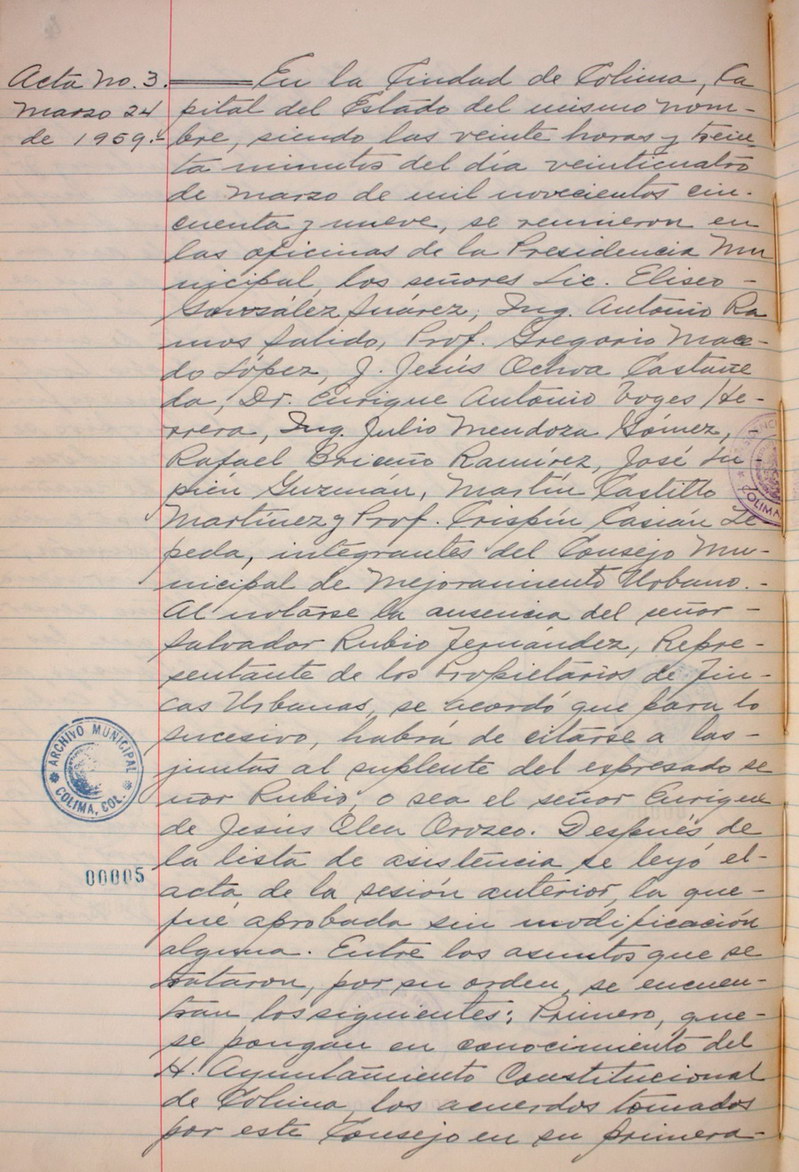 Acta No. 3.
Marzo 24
de 1959.-
En la Ciudad de Colima, Ca
pital del Estado del mismo nom-
bre, siendo las veinte horas y trein
ta minutos del día veinticuatro
de marzo de mil novecientos cin-
cuenta y nueve, se reunieron en
las oficinas de la Presidencia Mu
nicipal, los señores Lic. Eliseo -
González Suárez, Ing. Antonio Ra
mos Salido, Prof. Gregorio Mace-
do López, J. Jesús Ochoa Castañe
da, Dr. Enrique Antonio Voges He-
rrera, Ing. Julio Mendoza Gómez, -
Rafael Briceño Ramírez, José Lu-
pién Guzmán, Martín Castillo
Martínez y Prof. Crispín Casián Ze
peda, integrantes del Consejo Mu-
nicipal de Mejoramiento Urbano. -
Al notarse la ausencia del señor -
Salvador Rubio Fernández, Repre-
sentante de los Propietarios de Fin-
cas Urbanas, se acordó que para lo
sucesivo, habrá de citarse a las -
juntas al suplente del expresado se
ñor Rubio, o sea el señor Enrique
de Jesús Olea Orozco. Después de
la lista de asistencia, se leyó el-
acta de la sesión anterior, la que-
fué aprobada sin modificación
alguna. Entre los asuntos que se
trataron, por su orden, se encuen-
tran los siguientes: Primero, que-
se pongan en conocimiento del
H. Ayuntamiento Constitucional
de Colima, los acuerdos tomados
por este Consejo en su primera-
ARCHIVO MUNICIPAL
COLIMA, COL.
00005
COLIMA